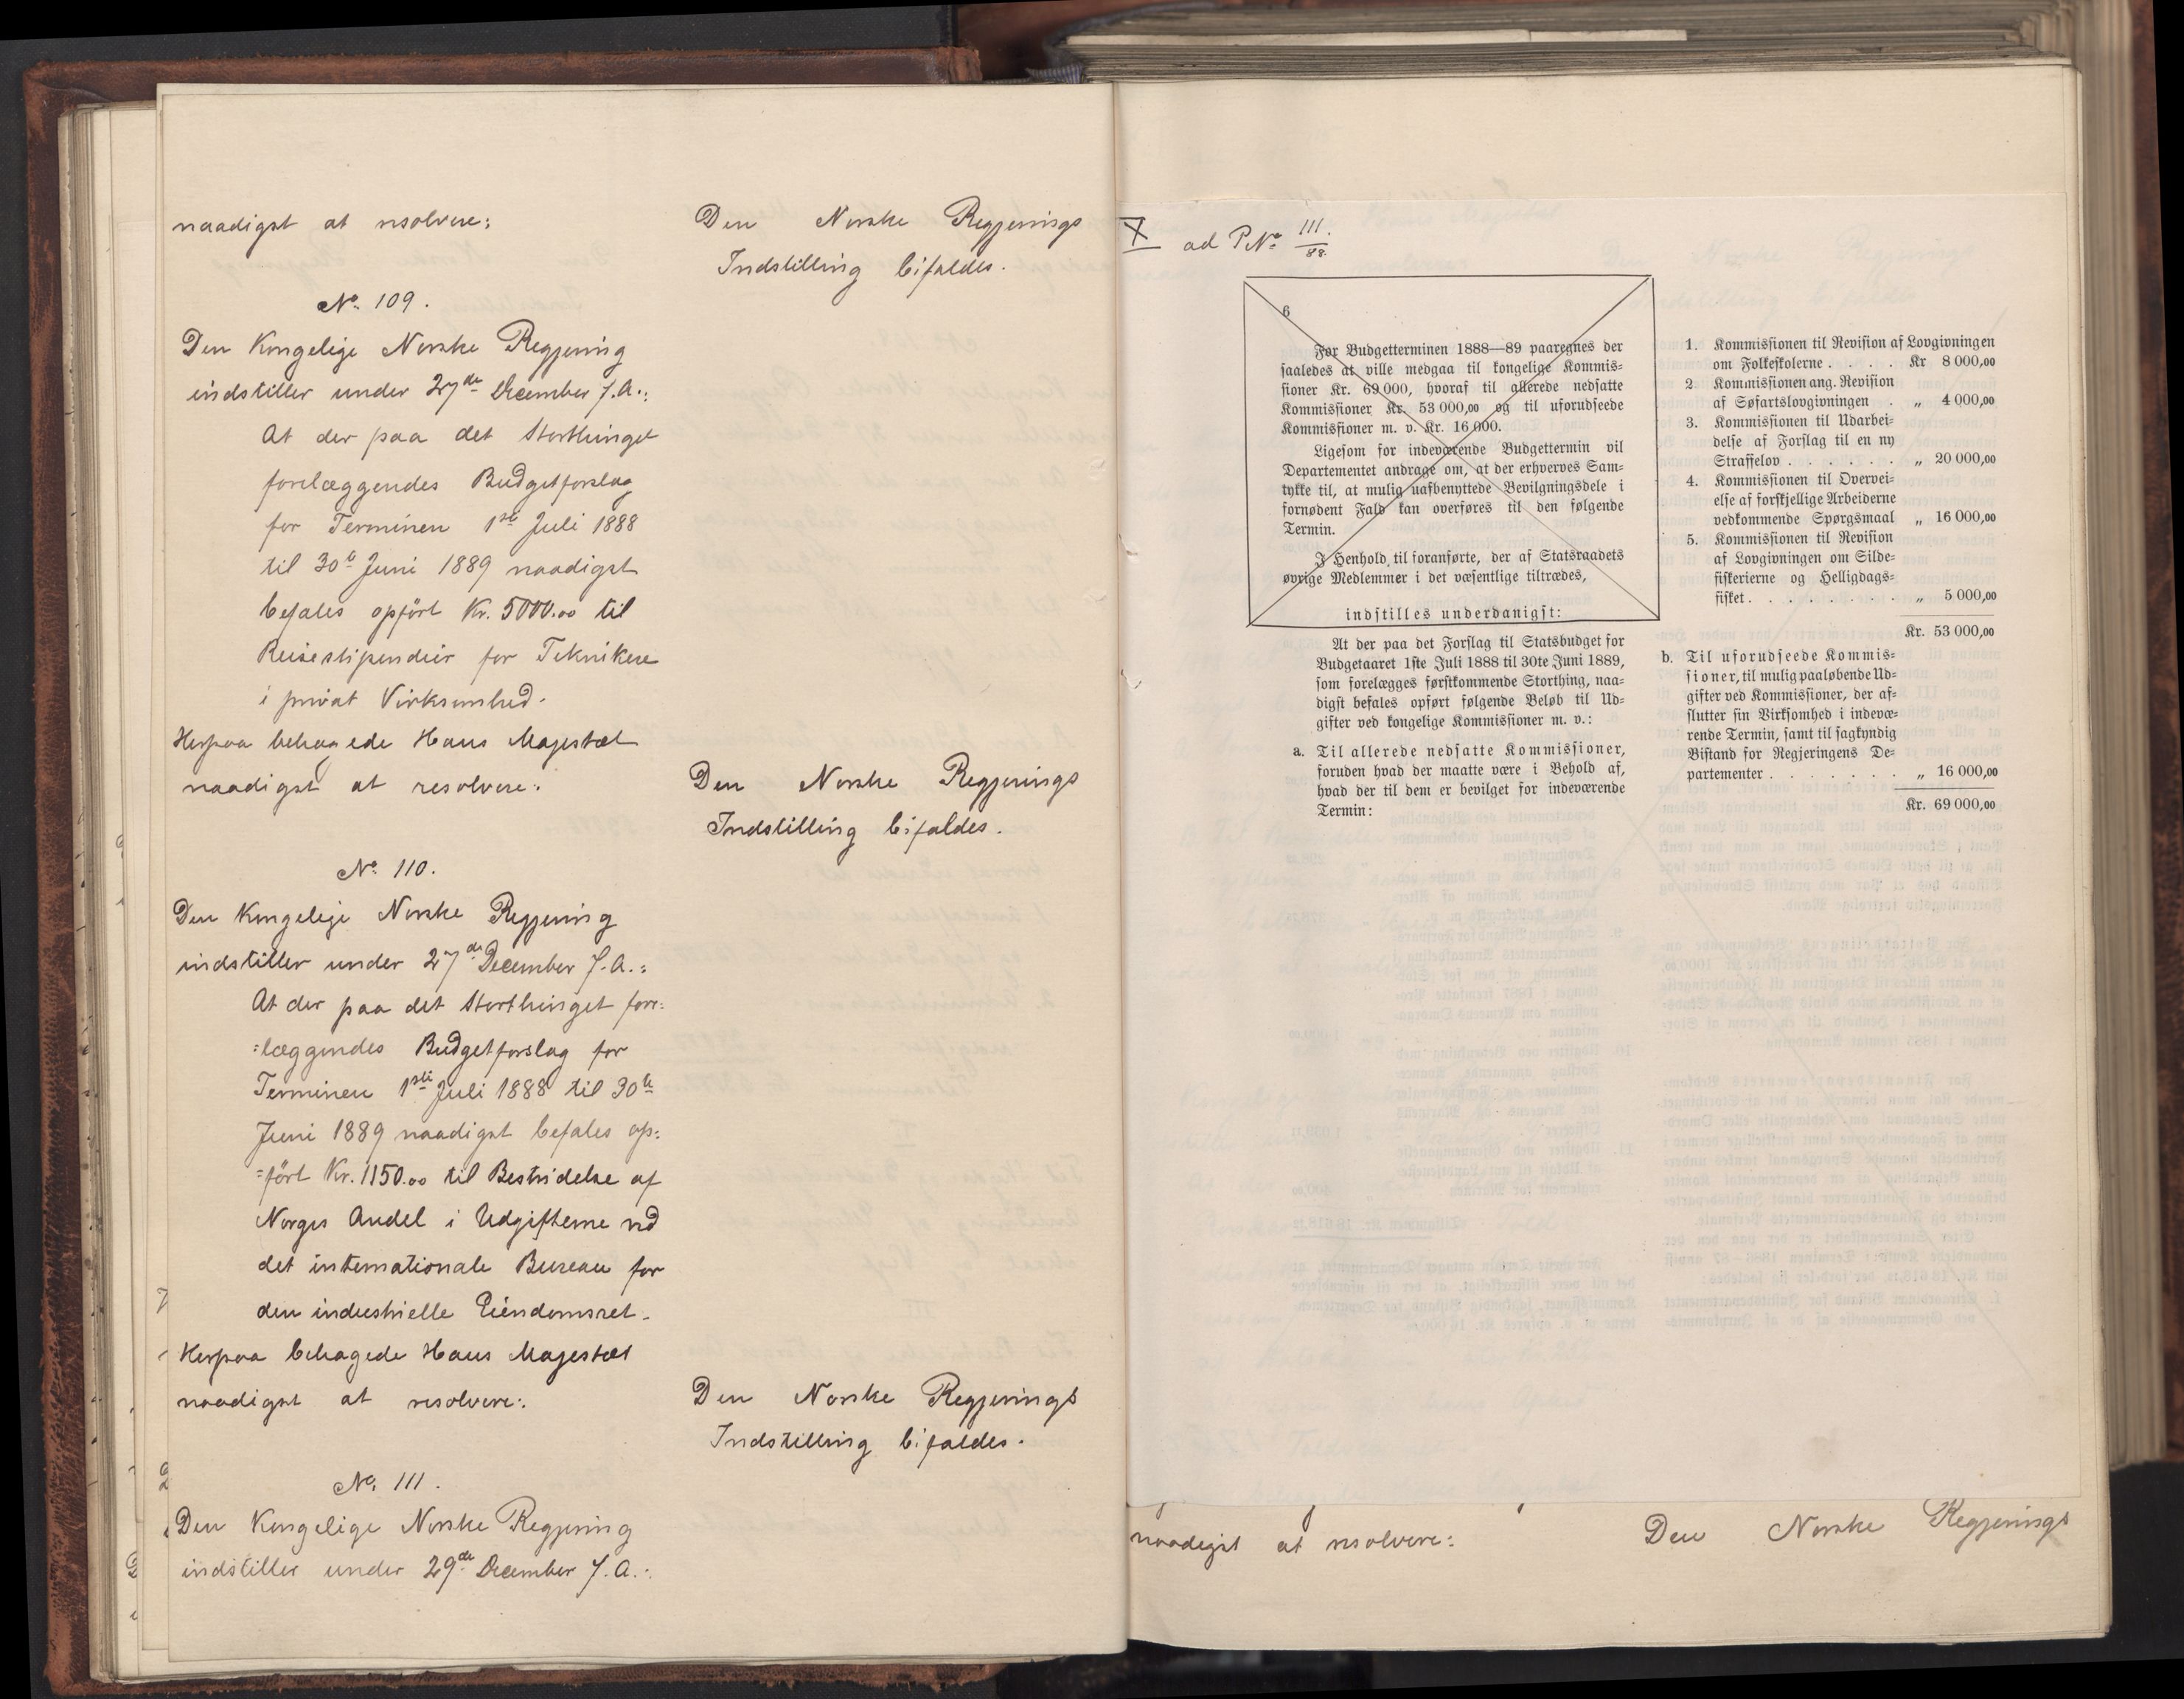 naadigst at resolvere:
Den Norske Regjerings
Indstilling bifaldes.
No. 109.
Den Kongelige Norske Regjering
indstiller under 27de December f. A.:
At der paa det Storthinget
forelæggendes Budgetforslag
for Terminen 1ste Juli 1888
til 30te Juni 1889 naadigst
befales opført Kr. 5000.00 til
Reisestipendier for Teknikere
i privat Virksomhed.
Herpaa behagede Hans Majestæt
naadigst at resolvere:
Den Norske Regjerings
Indstilling bifaldes.
No. 110.
Den Kongelige Norske Regjering
indstiller under 27de December f. A.:
At der paa det Storthinget fore=
=læggendes Budgetforslag for
Terminen 1ste Juli 1888 til 30te
Juni 1889 naadigst befales op=
=ført Kr. 1150.00 til Bestridelse af
Norges Andel i Udgifterne ved
det internationale Bureau for
den industrielle Eiendomsret.
Herpaa behagede Hans Majestæt
naadigst at resolvere:
Den Norske Regjerings
Indstilling bifaldes.
No. 111.
Den Kongelige Norske Regjering
indstiller under 29de December f. A.:
X ad P No. 111./88.
6
For Budgetterminen 1888—89 paaregnes der
saaledes at ville medgaa til kongelige Kommis=
sioner Kr. 69 000, hvoraf til allerede nedsatte
Kommissioner Kr. 53 000,00 og til uforudseede
Kommissioner m. v. Kr. 16 000.
Ligesom for indeværende Budgettermin vil
Departementet andrage om, at der erhverves Sam=
tykke til, at mulig uafbenyttede Bevilgningsdele i
fornødent Fald kan overføres til den følgende
Termin.
I Henhold til foranførte, der af Statsraadets
øvrige Medlemmer i det væsentlige tiltrædes,
indstilles underdanigst:
At der paa det Forslag til Statsbudget for
Budgetaaret 1ste Juli 1888 til 30te Juni 1889,
som forelægges førstkommende Storthing, naa=
digst befales opført følgende Beløb til Ud=
gifter ved kongelige Kommissioner m. v.:
a. Til allerede nedsatte Kommissioner,
foruden hvad der maatte være i Behold af,
hvad der til dem er bevilget for indeværende
Termin:
1. Kommissionen til Revision af Lovgivningen
om Folkeskolerne . . . . Kr 8 000,00
2 Kommissionen ang. Revision
af Søfartslovgivningen . „ 4 000,00
3. Kommissionen til Udarbei=
delse af Forslag til en ny
Straffelov . . . . . . „ 20 000,00
4. Kommissionen til Overvei=
else af forskjellige Arbeiderne
vedkommende Spørgsmaal „ 16 000,00
5. Kommissionen til Revision
af Lovgivningen om Silde=
fiskerierne og Helligdags=
fisket. . . . . . . . „ 5 000,00
Kr. 53 000,00
b. Til uforudseede Kommis=
sioner, til mulig paaløbende Ud=
gifter ved Kommissioner, der af=
slutter sin Virksomhed i indevæ=
rende Termin, samt til sagkyndig
Bistand for Regjeringens De=
partementer . . . . . . . „ 16 000,00
Kr. 69 000,00
naadigst at resolvere:
Den Norske Regjerings